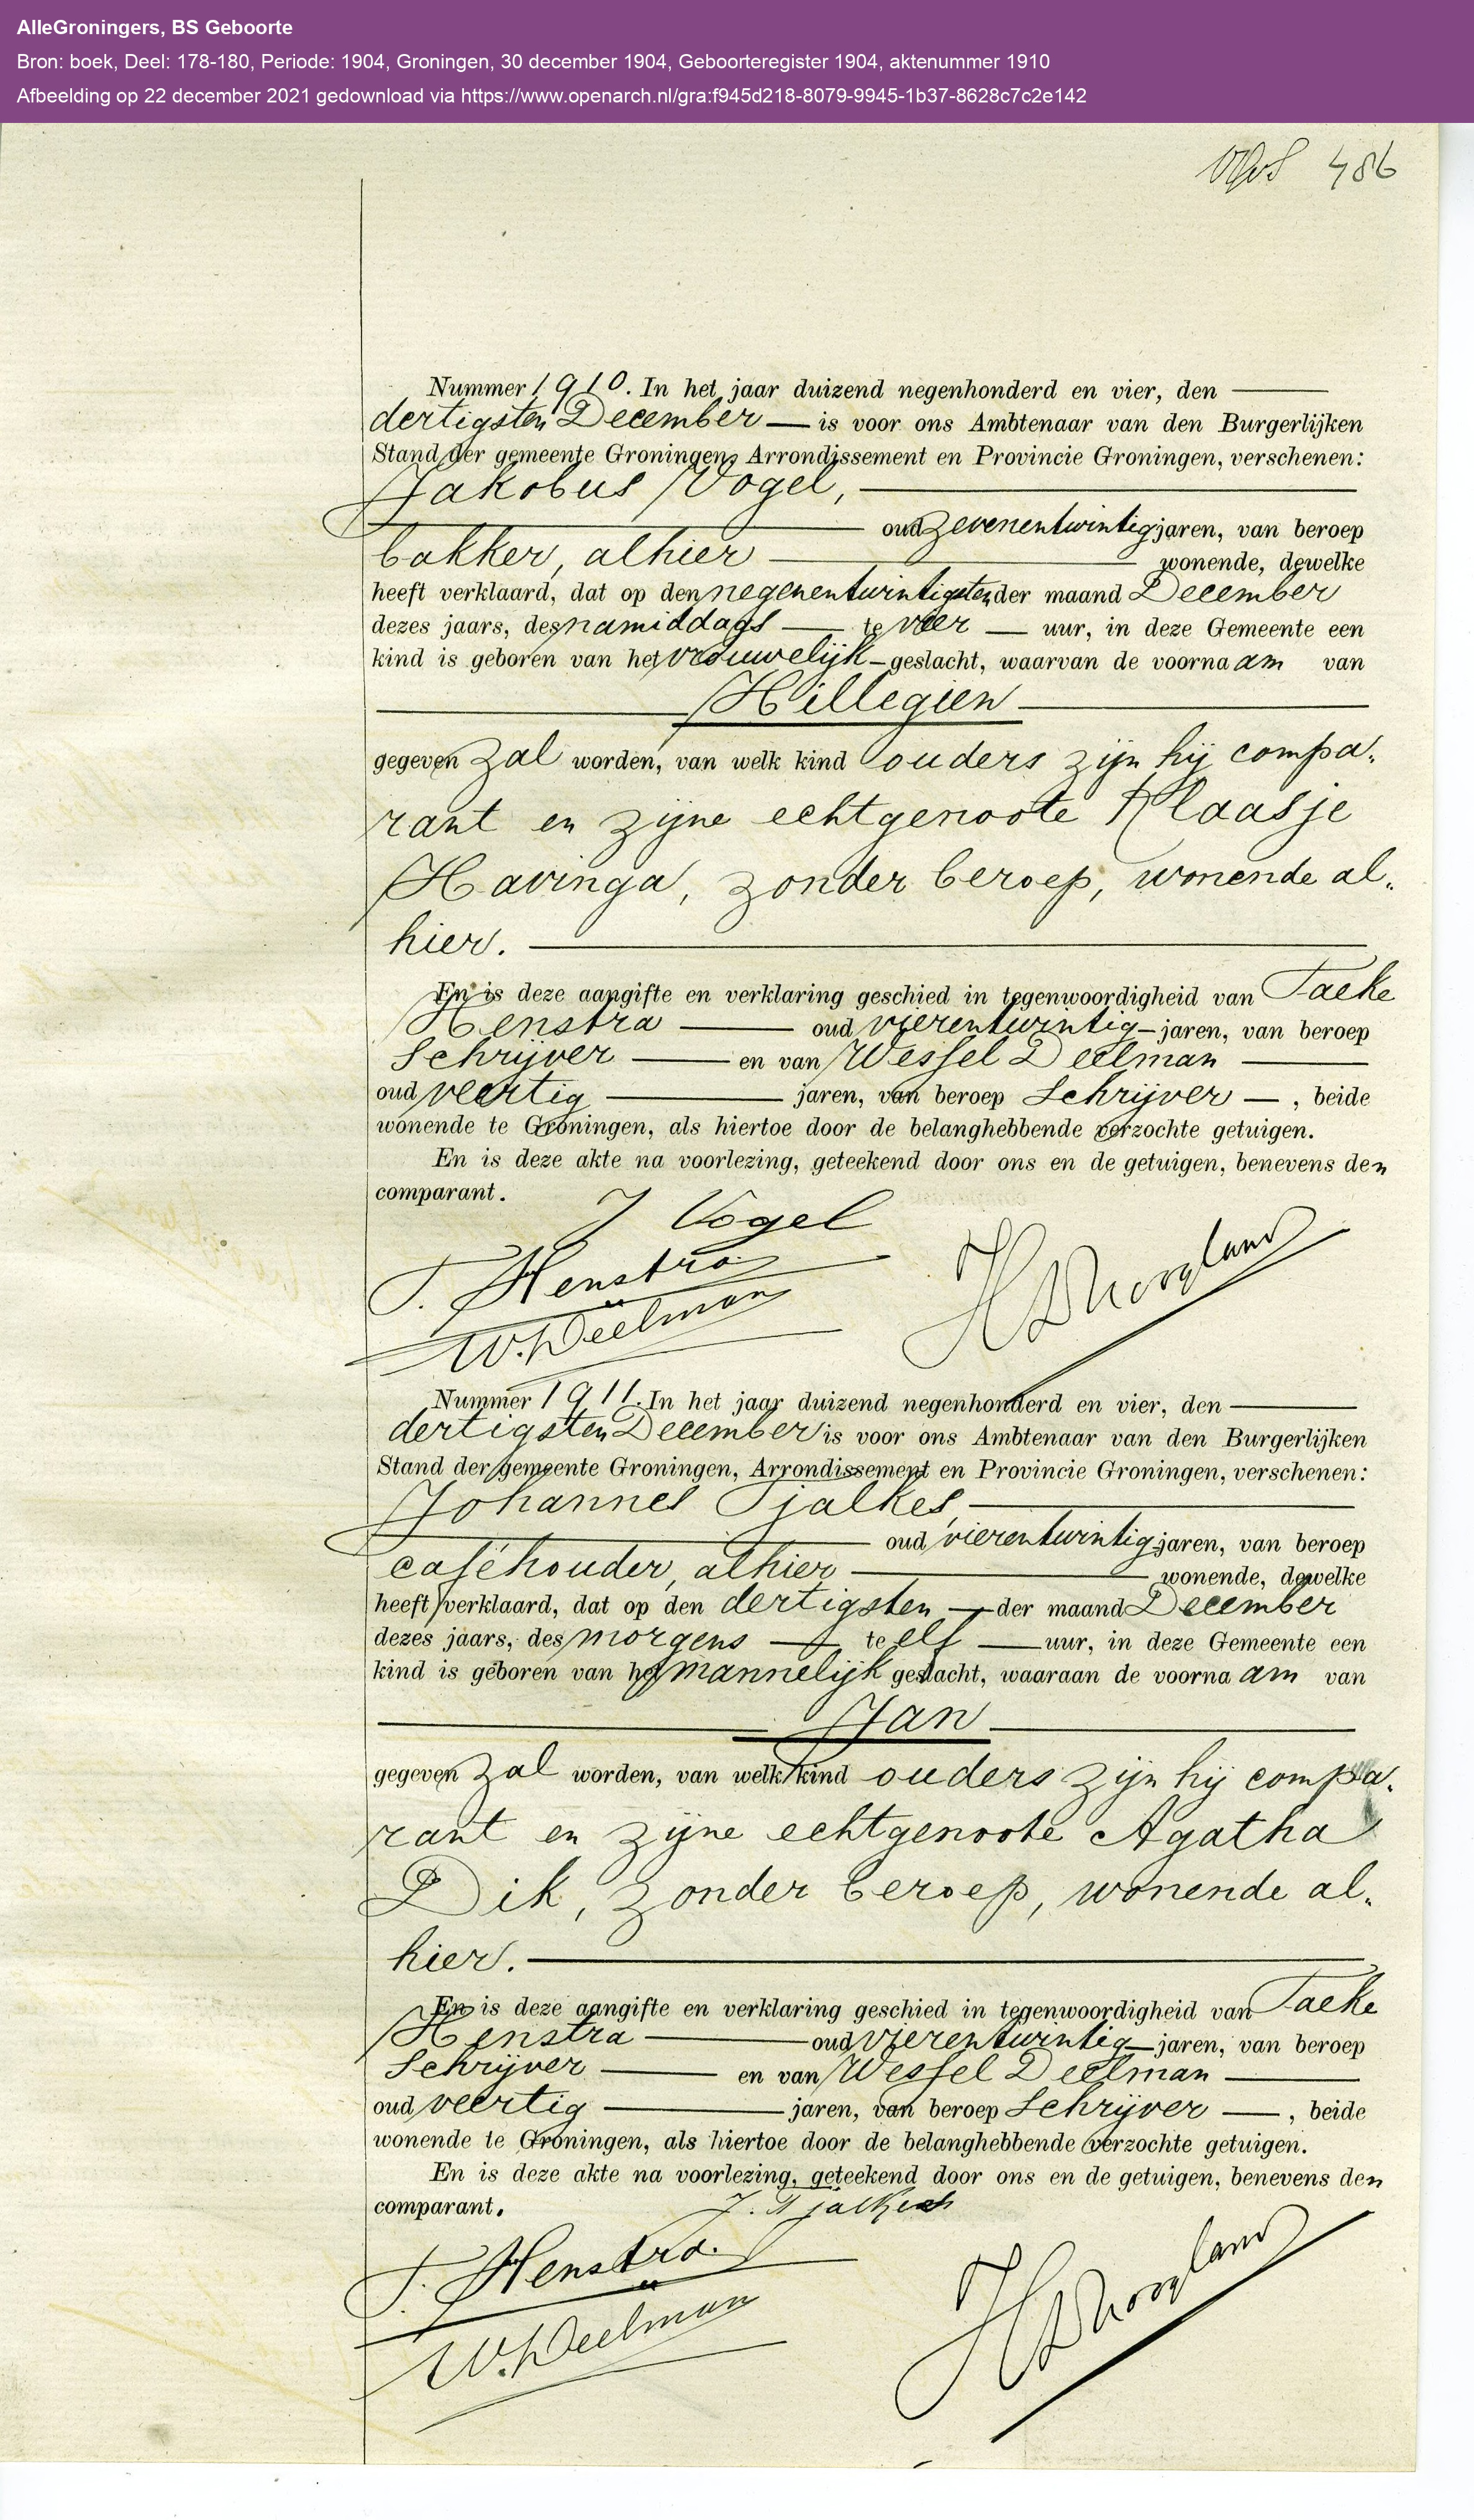 AlleGroningers, BS Geboorte
Bron: boek, Deel: 178-180, Periode: 1904, Groningen, 30 december 1904, Geboorteregister 1904, aktenummer 1910
Afbeelding op 22 december 2021 gedownload via https://www.openarch.nl/gra:f945d218-8079-9945-1b37-8628c7c2e142
486
Nummer 1910. In het jaar duizend negenhonderd en vier, den
dertigsten December — is voor ons Ambtenaar van den Burgerlijken
Stand der gemeente Groningen, Arrondissement en Provincie Groningen, verschenen:
Jakobus Vogel,
oud zevenentwintig jaren, van beroep
bakker, alhier wonende, dewelke
heeft verklaard, dat op den negenentwintigsten der maand December
dezes jaars, des namiddags — te vier — uur, in deze Gemeente een
kind is geboren van het vrouwelijk geslacht, waarvan de voornaam van
Hillegien
gegeven zal worden, van welk kind ouders zijn hij compa„
rant en zijne echtgenoote Klaasje
Havinga, zonder beroep, wonende al„
hier.
En is deze aangifte en verklaring geschied in tegenwoordigheid van Taeke
Henstra — oud vierentwintig jaren, van beroep
Schrijver — en van Wessel Deelman
oud veertig — jaren, van beroep Schrijver —, beide
wonende te Groningen, als hiertoe door de belanghebbende verzochte getuigen.
En is deze akte na voorlezing, geteekend door ons en de getuigen, benevens den
comparant.
J Vogel
T. Henstra
W. Deelman
Nummer 1911. In het jaar duizend negenhonderd en vier, den
dertigsten December is voor ons Ambtenaar van den Burgerlijken
Stand der gemeente Groningen, Arrondissement en Provincie Groningen, verschenen:
Johannes Tjalkes,
oud vierentwintig jaren, van beroep
caféhouder, alhier wonende, dewelke
heeft verklaard, dat op den dertigsten — der maand December
dezes jaars, des morgens — te elf — uur, in deze Gemeente een
kind is geboren van het mannelijk geslacht, waaraan de voornaam van
Jan
gegeven zal worden, van welk kind ouders zijn hij compa„
rant en zijne echtgenoote Agatha
Dik, zonder beroep, wonende al„
hier.
En is deze aangifte en verklaring geschied in tegenwoordigheid van Taeke
Henstra — oud vierentwintig — jaren, van beroep
Schrijver — en van Wessel Deelman
oud veertig — jaren, van beroep Schrijver —, beide
wonende te Groningen, als hiertoe door de belanghebbende verzochte getuigen.
En is deze akte na voorlezing, geteekend door ons en de getuigen, benevens den
comparant.
J. Tjalkes
T. Henstra.
W. Deelman